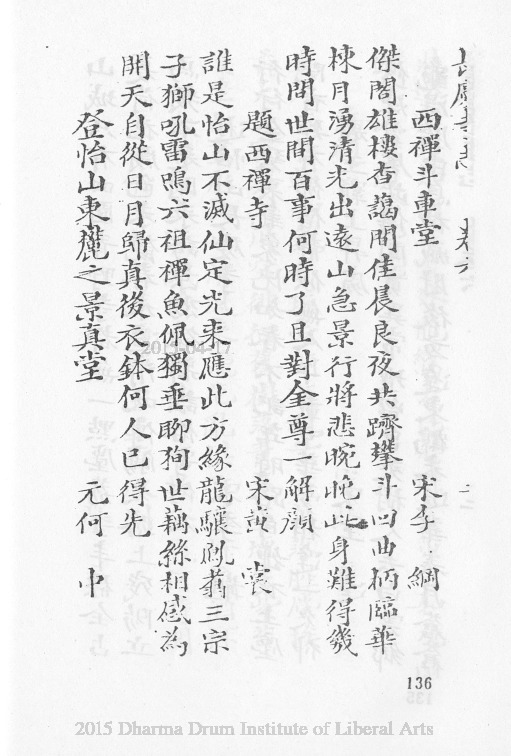 長慶寺志　卷六　二
西禪斗車堂　宋李綱
傑閣雄樓杳靄間佳晨良夜共躋攀斗凹曲柄臨華
棟月湧清光出遠山急景行將悲晼晚此身難得幾
時間世間百事何時了且對金尊一解顏
題西禪寺　宋黃裳
誰是怡山不滅仙定光来應此方緣龍驤鳳翥三宗
子獅吼雷鳴六祖禪魚佩獨垂聊狥世藕絲相感為
開天自從日月歸真後衣鉢何人已得先
登怡山東麓之景真堂　元何中
136
2015 Dharma Drum Institute of Liberal Arts